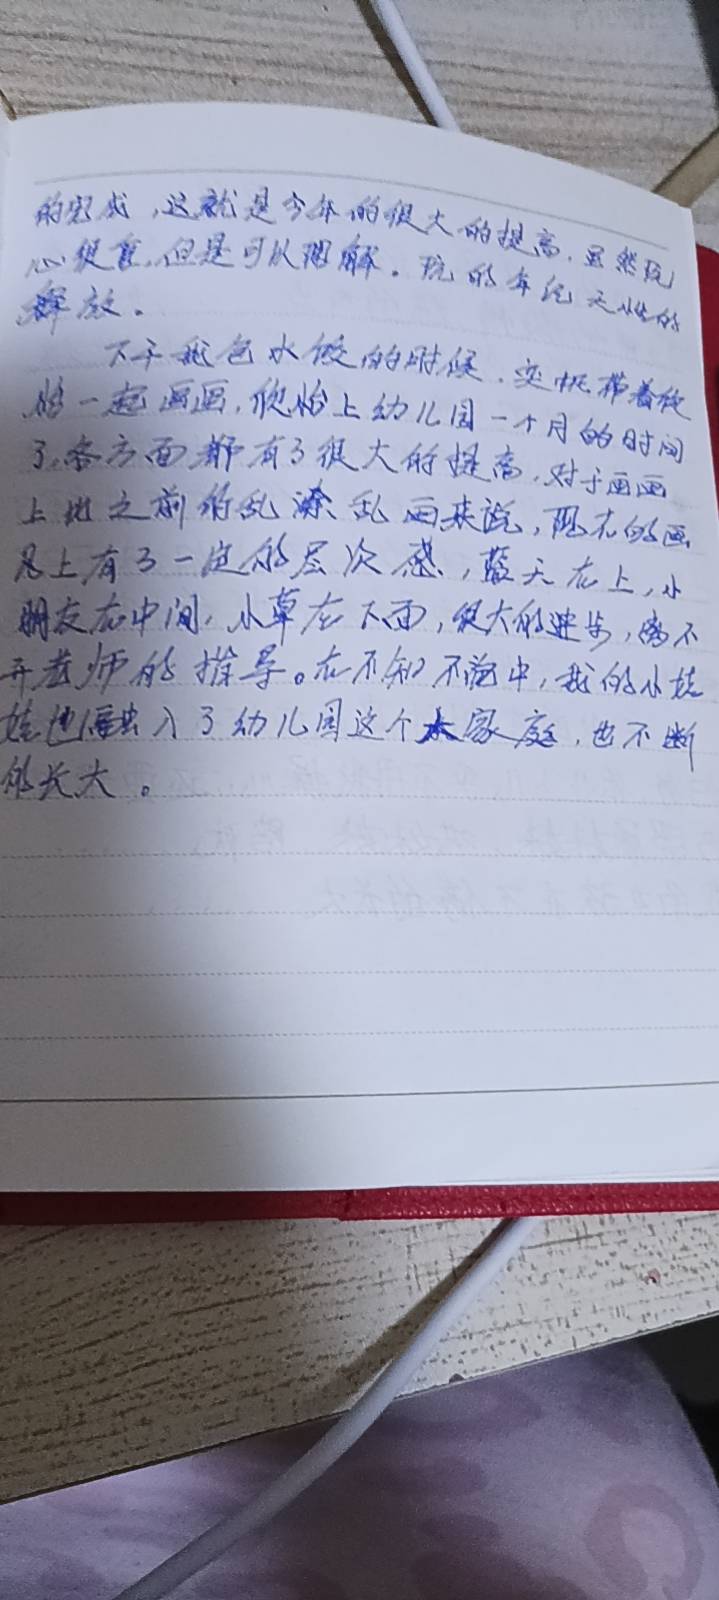 的完成，这就是今年的很大的提高，虽然玩
心很重，但是可以理解。玩的年纪天性的
释放。
下午我包水饺的时候，奕帆带着欣
怡一起画画，欣怡上幼儿园一个月的时间
了，各方面都有了很大的提高，对于画画
上比之前的乱涂乱画来说，现在的画
风上有了一定的层次感，蓝天在上，小
朋友在中间，小草在下面，很大的进步，离不
开老师的指导。在不知不觉中，我的小娃
娃也融入了幼儿园这个大家庭，也不断
的长大。